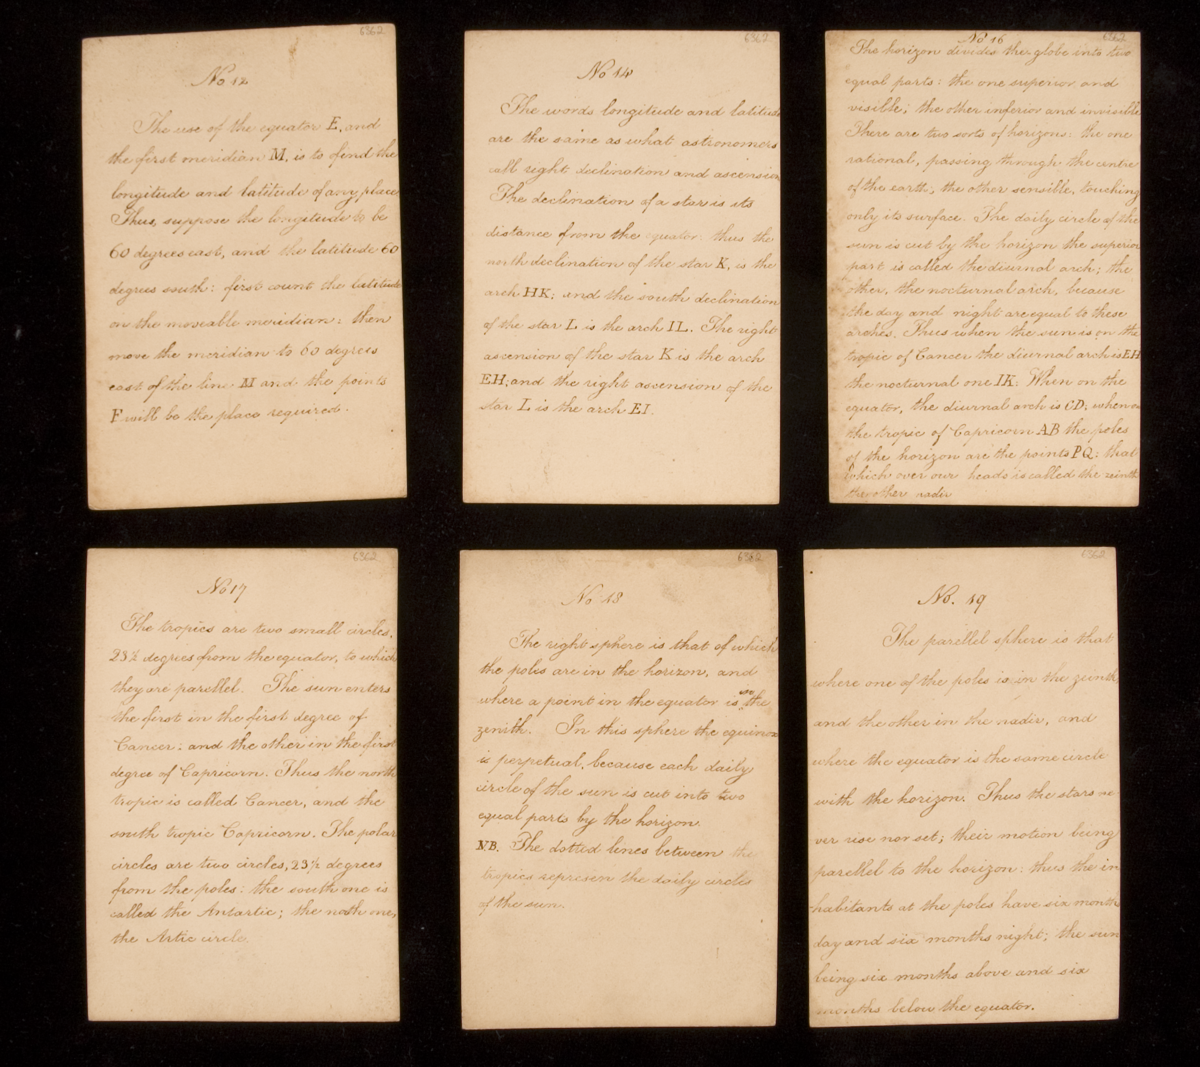 6362
No 12
The use of the equator E, and
the first meridian M, is to fiend the
longitude and latitude of any place
Thus, suppose the longitude to be
60 degrees east, and the latitude 60
degrees south: first count the latitude
on the moveable meridian: then
move the meridian to 60 degrees
east of the line M and the points
F will be the place required.
6362
No 14
The words longitude and latitude
are the same as what astronomers
call right declination and ascension
The declination of a star is its
distance from the equator: thus the
north declination of the star K, is the
arch HK; and the south declination
of the star L is the arch IL. The right
ascension of the star K is the arch
EH; and the right ascension of the
star L is the arch EI.
6362
No 16
The horizon divides the globe into two
equal parts: the one superior and
visible; the other inferior and invisible
There are two sorts of horizons: the one
rational, passing through the centre
of the earth; the other sensible, touching
only its surface. The daily circle of the
sun is cut by the horizon the superior
part is called the diurnal arch; the
other, the nocturnal arch, because
the day and night are equal to these
arches. Thus when the sun is on the
tropic of Cancer the diurnal arch is EH
the nocturnal one IK: When on the
equator, the diurnal arch is CD; when on
the tropic of Capricorn AB the poles
of the horizon are the points PQ: that
which over our heads is called the zenith
the other nadir
6362
No 17
The tropics are two small circles,
23½ degrees from the equator, to which
they are parellel. The sun enters
the first in the first degree of
Cancer: and the other in the first
degree of Capricorn. Thus the north
tropic is called Cancer, and the
south tropic Capricorn. The polar
circles are two circles, 23½ degrees
from the poles: the south one is
called the Antartic; the north one,
the Artic circle.
6362
No 18
The right sphere is that of which
the poles are in the horizon, and
where a point in the equator is the
zenith. In this sphere the equinox
is perpetual, because each daily
circle of the sun is cut into two
equal parts by the horizon.
NB. The dotted lines between the
tropics represen the daily circles
of the sun.
6362
No. 19
The parellel sphere is that
where one of the poles is in the zenith
and the other in the nadir, and
where the equator is the same circle
with the horizon. Thus the stars ne
ver rise nor set; their motion being
parellel to the horizon: thus the in
habitants at the poles have six months
day and six months night; the sun
being six months above and six
months below the equator.